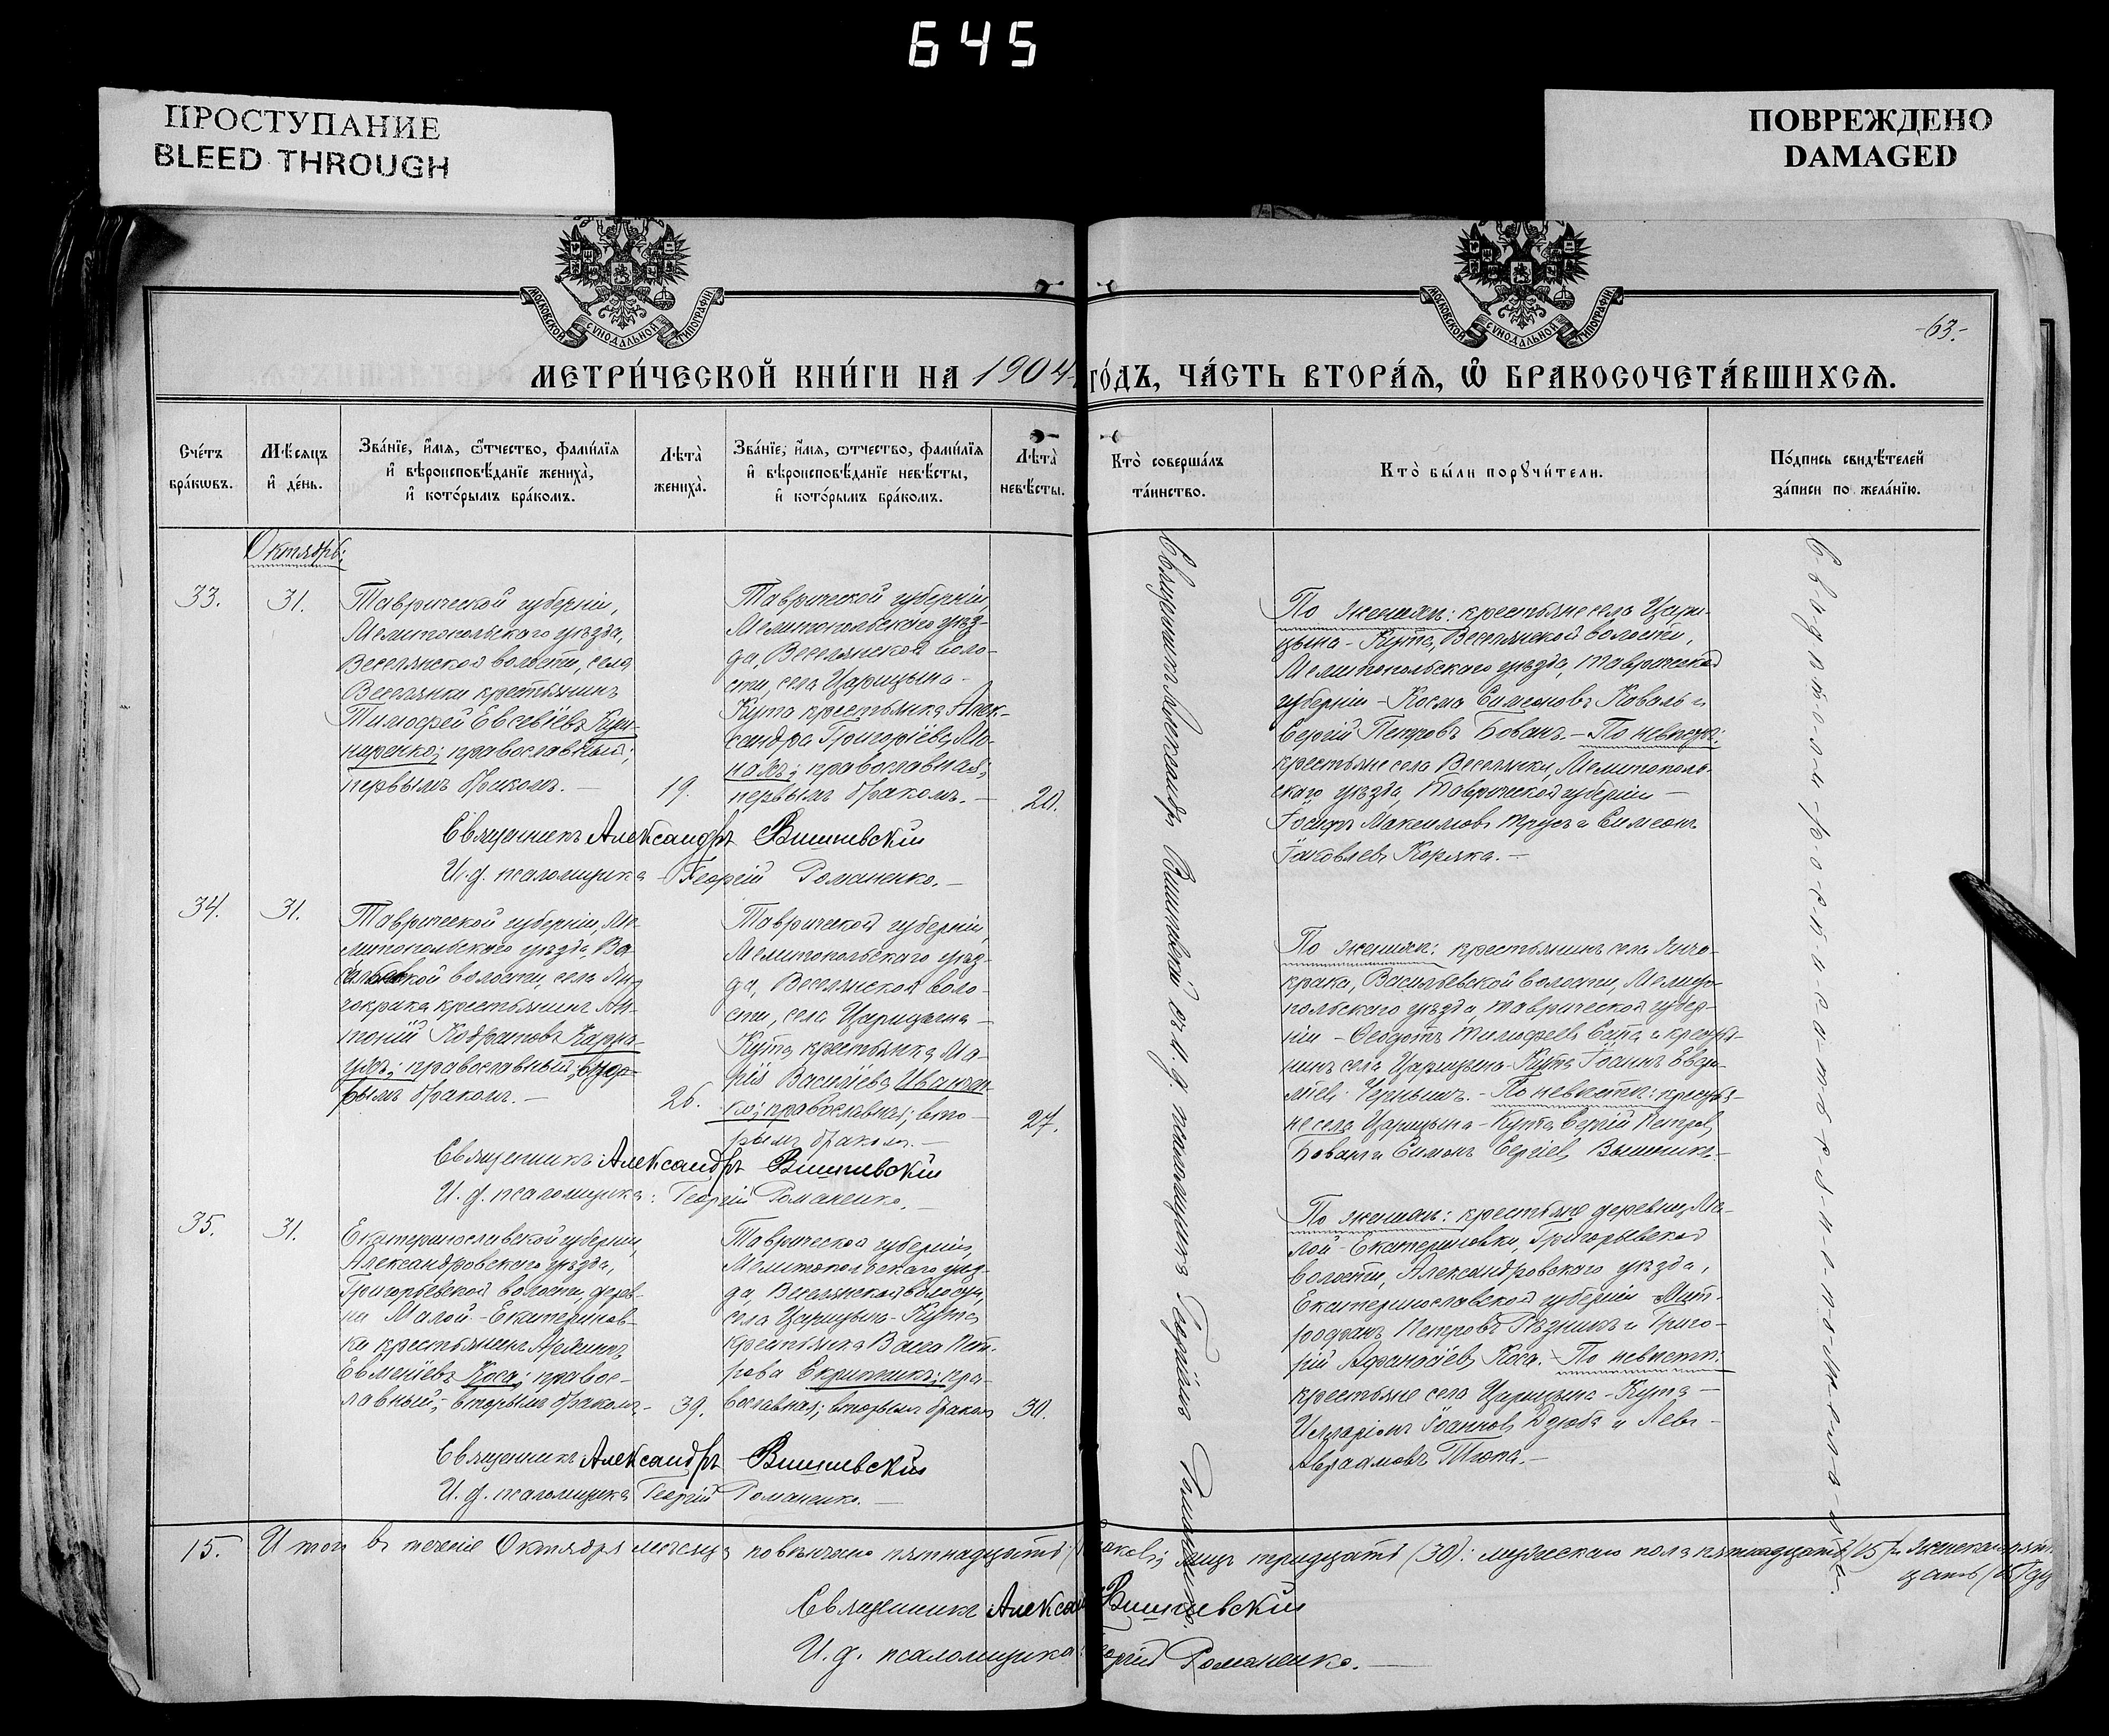 645
ПРОСТУПАНИЕ
BLEED THROUGH
ПОВРЕЖДЕНО
DAMAGED
МОСКОВСКОЙ СѴНОДАЛЬНОЙ ТИПОГРАФІИ
МОСКОВСКОЙ СѴНОДАЛЬНОЙ ТИПОГРАФІИ
-63-
МЕТРИ́ЧЕСКОЙ КНИ́ГИ НА 1904 ГО́ДЪ, ЧА́СТЬ ВТОРА́Я, Ѡ҆ БРАКОСОЧЕТА́ВШИХСѦ.
Сче́тъ
бра́кωвъ.
Мѣ́сяцъ
и҆ де́нь.
Зва́нїе, и҆́мя, ѻ҆́тчество, фами́лїя
и҆ вѣроисповѣ́данїе жениха̀,
и҆ кото́рымъ бра́комъ.
Лѣта̀
жениха̀.
Зва́нїе, и҆́мя, ѻтчество, фами́лїя
и҆ вѣроисповѣ́данїе невѣ́сты,
и҆ кото́рымъ бра́комъ.
Лѣта̀
невѣ́сты.
Кто̀ соверша́лъ
та́инство.
Кто̀ бы́ли порꙋчи́тели.
По́дпись свидѣ́телей
за́писи по жела́нїю.
Октябрь:
33.
31.
Таврической губерніи,
Мелитопольскаго уѣзда,
Веселянской волости, села
Веселянки крестьянинъ
Тимофей Евсевіевъ
православный;
первымъ бракомъ. —
19.
Таврической губерніи,
Мелитопольскаго уѣз-
да, Веселянской воло-
сти, села Царицына-
Кута крестьянка Алек-
сандра Григоріева Мо-
православная;
первымъ бракомъ. —
20.
Священникъ Александръ Вишневскій
И. д. псаломщика Георгій Романенко. —
По женихѣ: крестьяне села Цари-
цына-Кута, Веселянской волости,
Мелитопольскаго уѣзда, Таврической
губерніи — Косма Симеоновъ Коваль и
Сергій Петровъ Бованъ. — По невѣстѣ:
крестьяне села Веселянки, Мелитополь-
скаго уѣзда, Таврической губерніи —
Іосифъ Максимовъ Трусъ и Симеонъ
Іаковлевъ Коряка. —
34.
31.
Таврической губерніи, Ме-
литопольскаго уѣзда, Ва-
сильевской волости, села Ян-
чокрака крестьянинъ Ан-
тоній Кодратовъ
православный; вто-
рымъ бракомъ. —
26.
Таврической губерніи,
Мелитопольскаго уѣз-
да, Веселянской воло-
сти, села Царицына-
Кута крестьянка Ма-
рія Василіева Иванчен-
ко; православная; вто-
рымъ бракомъ. —
27.
Священникъ Александръ Вишневскій
И. д. псаломщика: Георгій Романенко. —
По женихѣ: крестьянинъ села Янчо-
крака, Васильевской волости, Мелито-
польскаго уѣзда, Таврической губер-
ніи — Ѳеодотъ Тимофеевъ и крестья-
нинъ села Царицына-Кута Іоаннъ
По невѣстѣ: крестья-
не села Царицына-Кута Сергій Петровъ
Бованъ и Симонъ Сергіевъ
35.
31.
Екатеринославской губерніи,
Александровскаго уѣзда,
Григорьевской волости, дерев-
ни Малой-Екатеринов-
ки крестьянинъ
Евменіевъ Коса; правос-
лавный; вторымъ бракомъ. —
39.
Таврической губерніи,
Мелитопольскаго уѣз-
да, Веселянской волости,
села Царицына-Кута
крестьянка Васса Пет-
рова Скрипникъ; пра-
вославная; вторымъ бракомъ
30.
Священникъ Александръ Вишневскій
И. д. псаломщика Георгій Романенко. —
По женихѣ: крестьяне деревни Ма-
лой-Екатериновки, Григорьевской
волости, Александровскаго уѣзда,
Екатеринославской губерніи Мит-
рофанъ Петровъ Рѣзникъ и Григо-
рій Афанасіевъ Коса. — По невѣстѣ:
крестьяне села Царицына-Кута —
Иларіонъ Іоанновъ Дзюба и Левъ
Авраамовъ Тюпа. —
Священникъ Александръ Вишневскій съ и. д. псаломщика Георгіемъ Романенко.
15. Итого въ теченіе Октября мѣсяца повѣнчано пятнадцать браковъ; лицъ тридцать (30): мужескаго пола пятнадцать (15) и женскаго пят-
Священникъ Александръ Вишневскій
И. д. псаломщика: Георгій Романенко. —